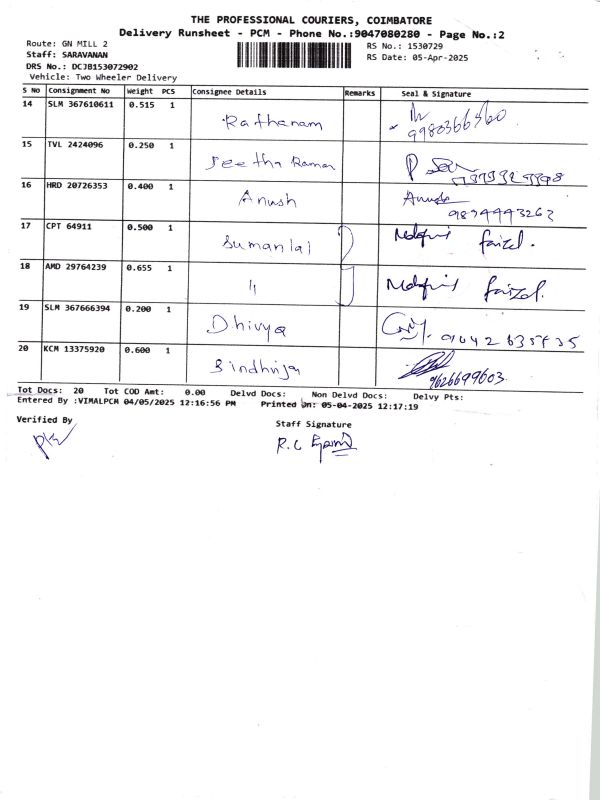 THE PROFESSIONAL COURIERS, COIMBATORE
Delivery Runsheet - PCM - Phone No.:9047080280 - Page No.:2
Route: GN MILL 2 RS No.: 1530729
Staff: SARAVANAN RS Date: 05-Apr-2025
DRS No.: DCJB153072902
Vehicle: Two Wheeler Delivery
S No Consignment No Weight PCS Consignee Details Remarks Seal & Signature
14 SLM 367610611 0.515 1 Rathanam 9980366560
15 TVL 2424096 0.250 1 Seetha Raman
16 HRD 20726353 0.400 1 Anush Anush 9894443262
17 CPT 64911 0.500 1 Sumanlal faizel.
18 AMD 29764239 0.655 1 " faizel.
19 SLM 367666394 0.200 1 Dhivya
20 KCM 13375920 0.600 1 Sindhuja 9626699603
Tot Docs: 20 Tot COD Amt: 0.00 Delvd Docs: Non Delvd Docs: Delvy Pts:
Entered By :VIMALPCM 04/05/2025 12:16:56 PM Printed On: 05-04-2025 12:17:19
Verified By
Staff Signature
R.C